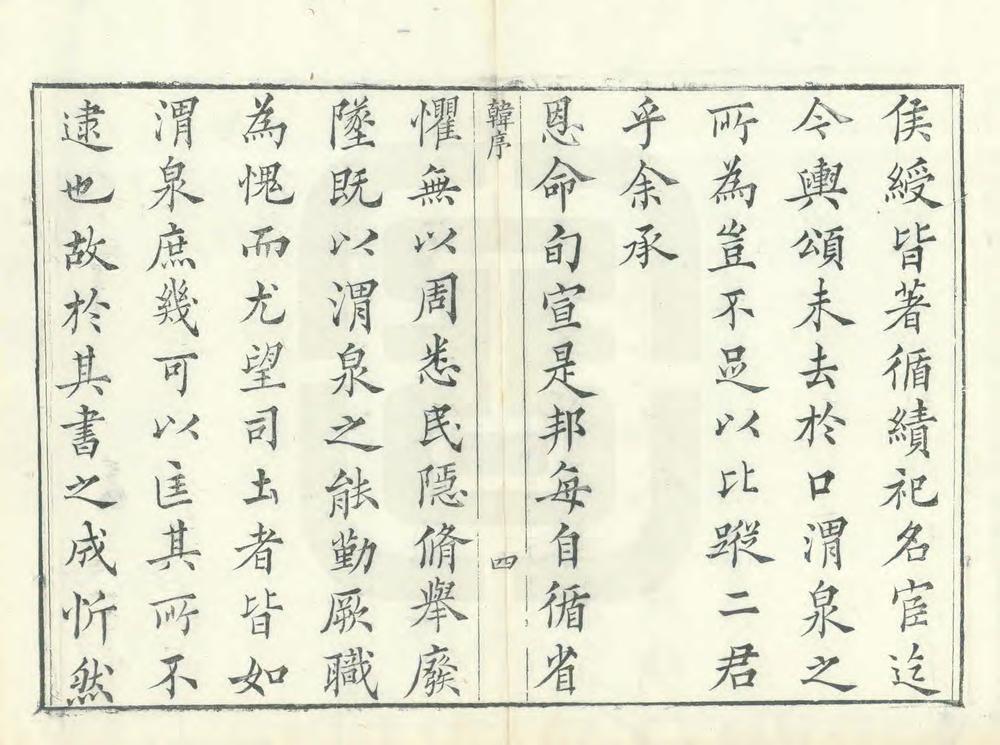 侯綬皆著循績祀名宦迄
今輿頌未去於口渭泉之
所為豈不足以比蹤二君
乎余承
恩命旬宣是邦每自循省
韓序
四
懼無以周悉民隱脩舉廢
墜既以渭泉之能勤厥職
為愧而尤望司土者皆如
渭泉庶幾可以匡其所不
逮也故於其書之成忻然